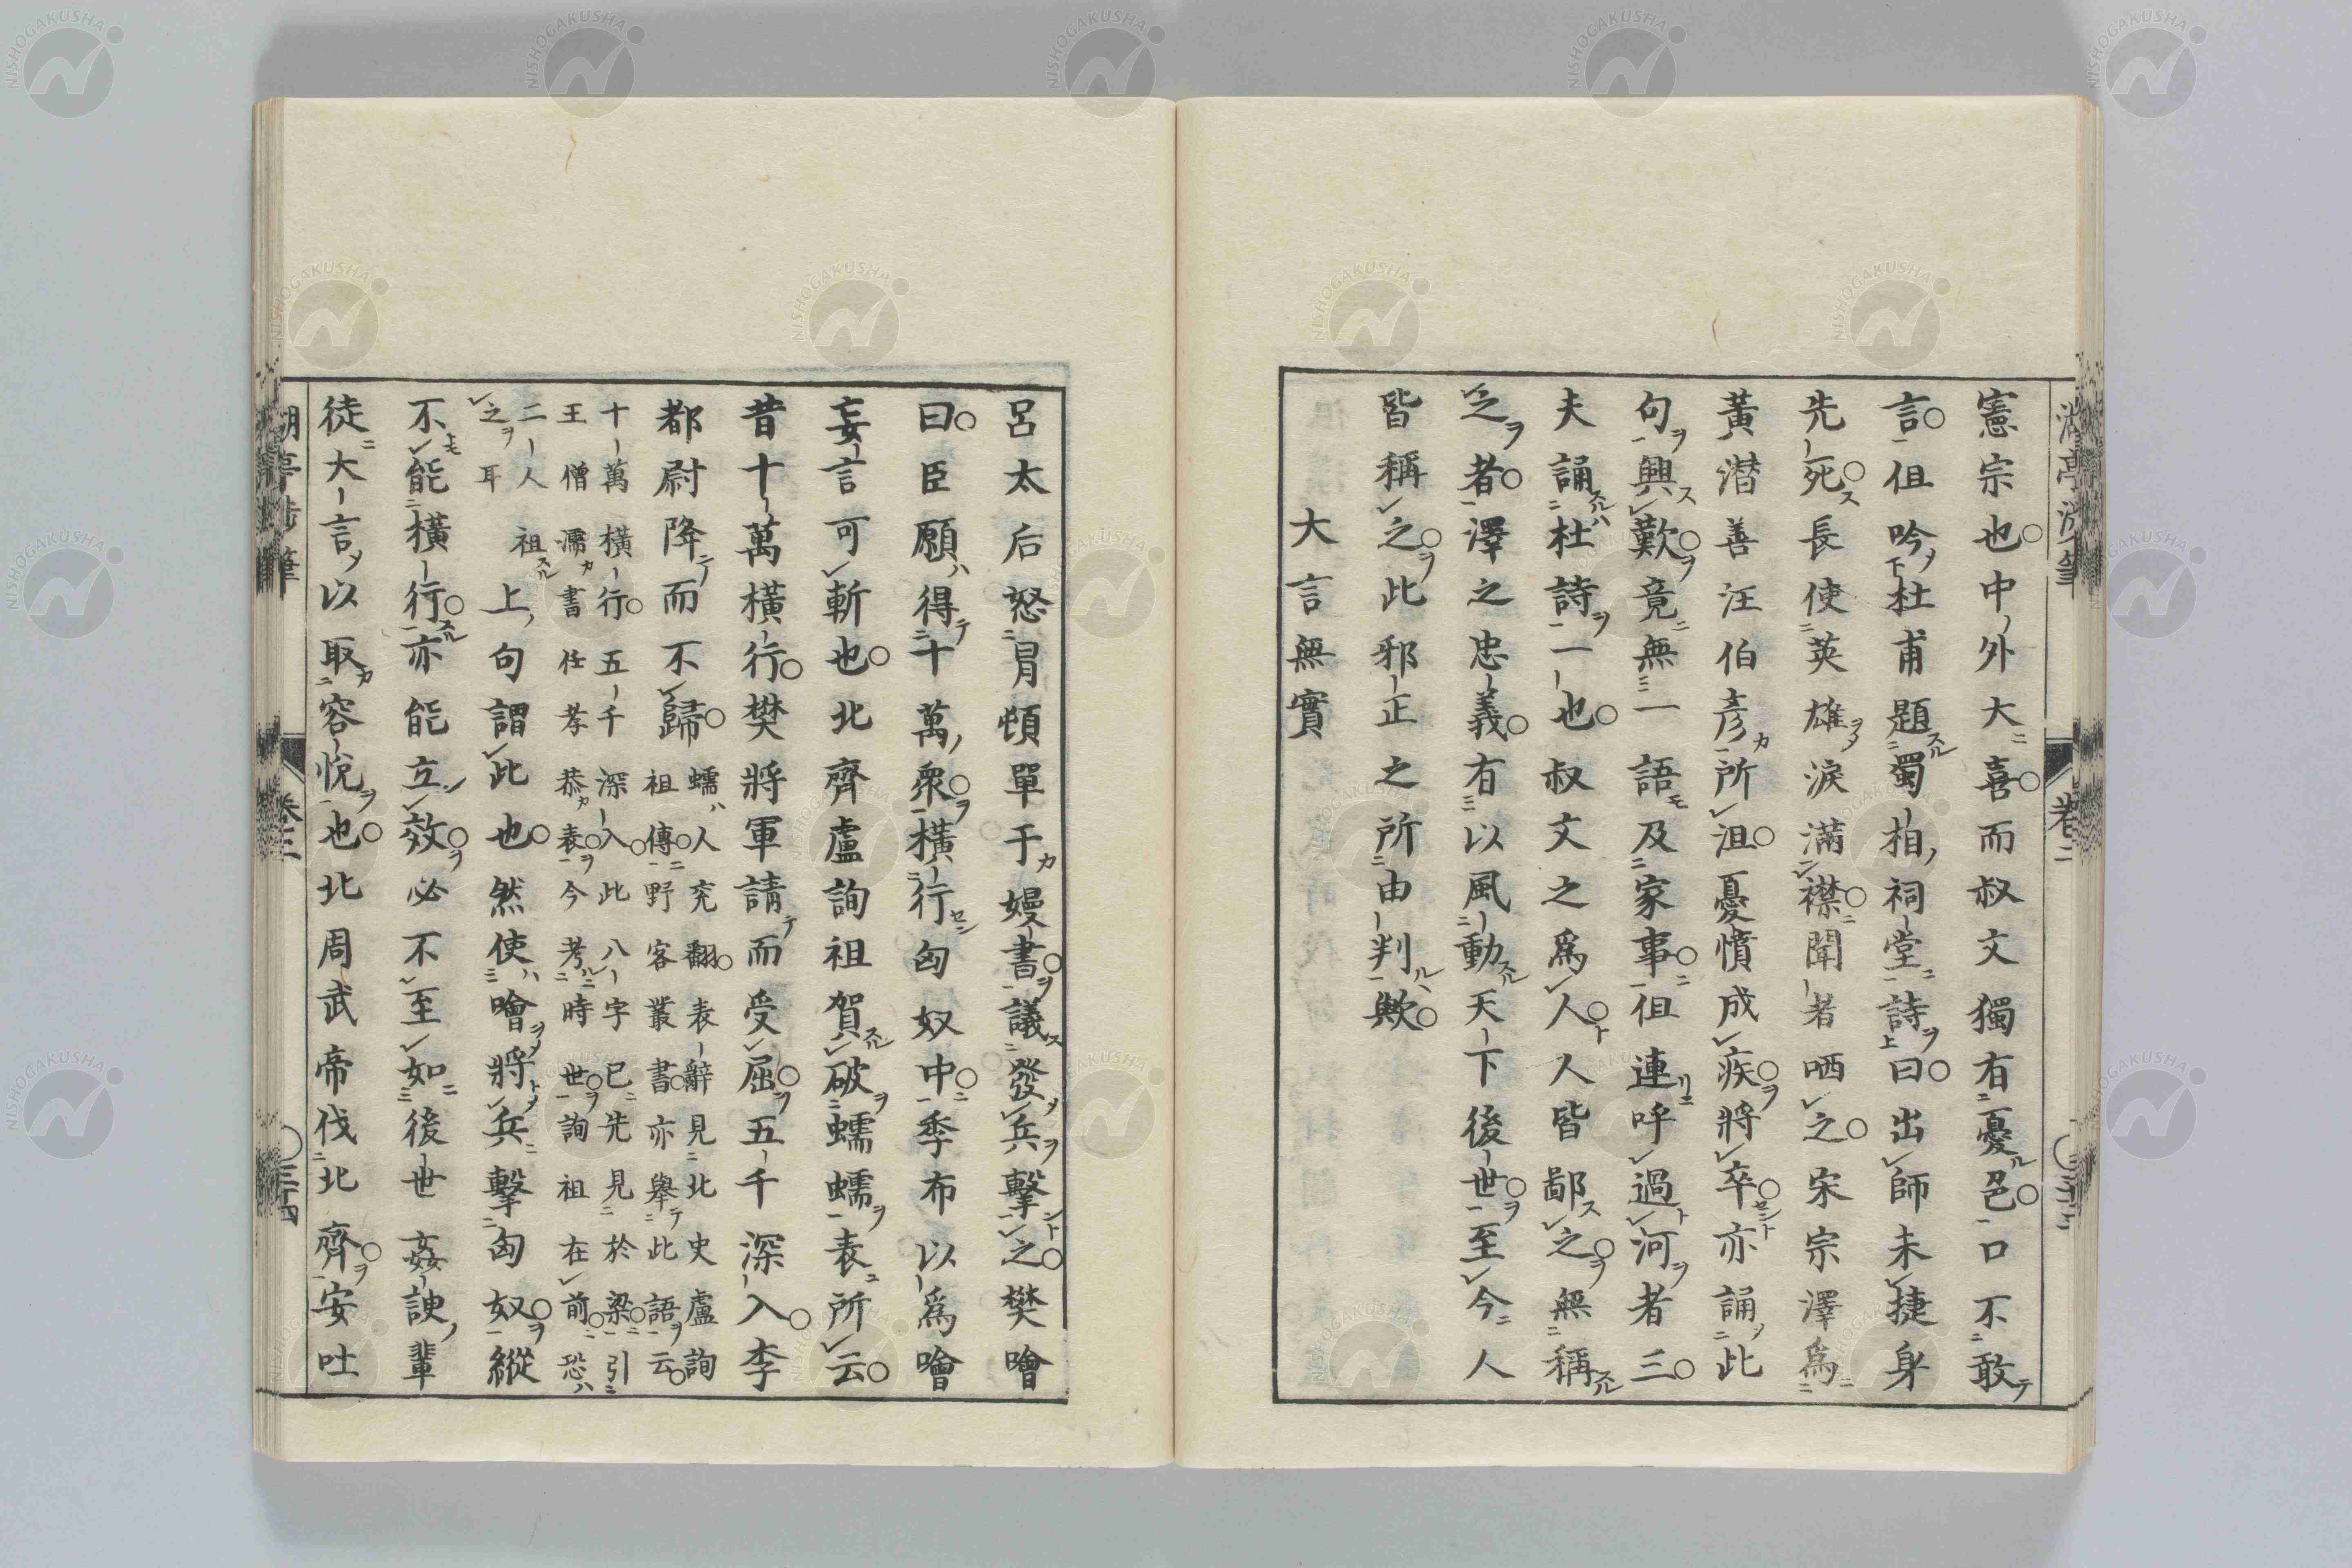 憲宗也中外大喜而叔文獨有憂邑口不敢
言但吟杜甫題蜀相祠堂詩曰出師未捷身
先死長使英雄淚滿襟聞者哂之宋宗澤爲
黃潛善汪伯彥所沮憂憤成疾將卒亦誦此
句興歎竟無一語及家事但連呼過河者三
夫誦杜詩一也叔文之爲人人皆鄙之無稱
之者澤之忠義有以風動天下後世至今人
皆稱之此邪正之所由判歟
大言無實
呂太后怒冐頓單于嫚書議發兵擊之樊噲
曰臣願得十萬衆橫行匈奴中季布以爲噲
妄言可斬也北齊盧詢祖賀破蠕蠕表所云
昔十萬橫行樊將軍請而受屈五千深入李
都尉降而不歸
蠕人充翻表辭見北史盧詢
祖傳野客叢書亦舉此語云
十萬橫行五千深入此八字已先見於梁引
王僧濡書任孝恭表今考時世詢祖在前恐
二人祖
之耳
上句謂此也然使噲將兵擊匈奴縱
不能橫行亦能立效必不至如後世姦諛輩
徒大言以取容悅也北周武帝伐北齊安吐
卷二
卷三
三十四
NISHOGAKUSHA